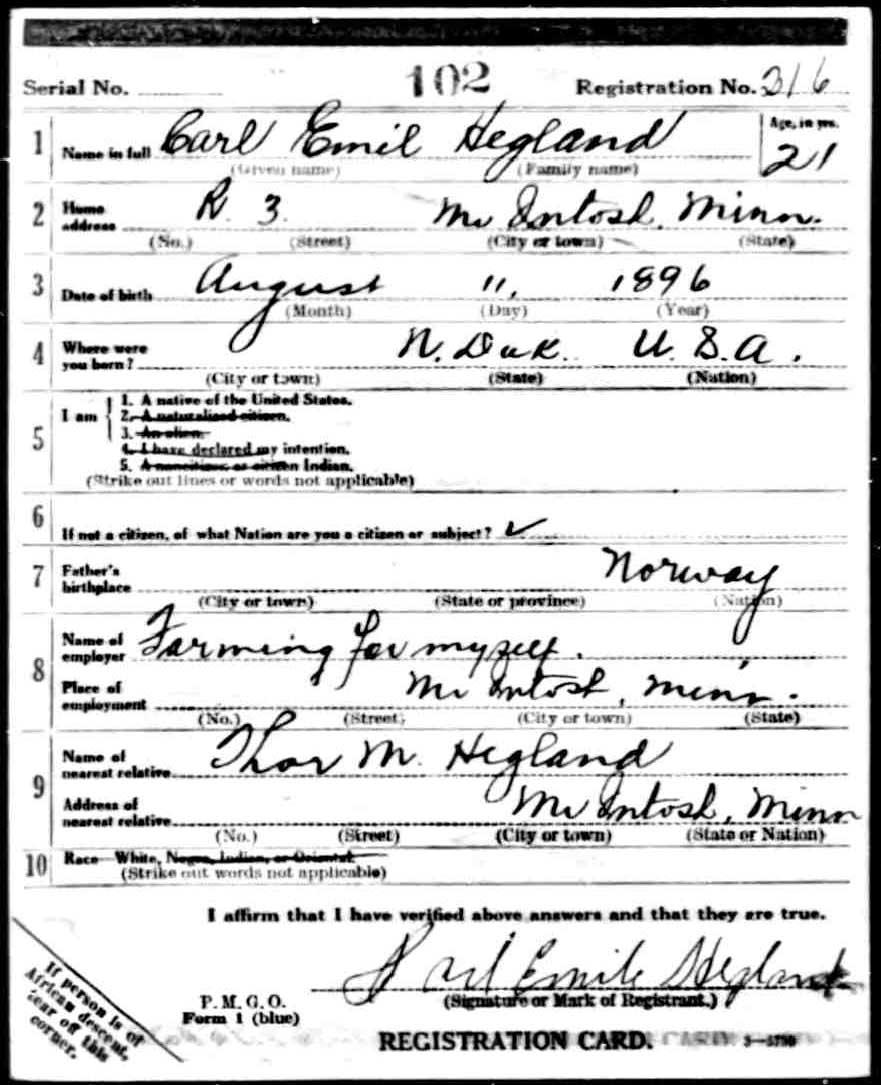 Serial No. 102 Registration No. 316
1 Name in full Carl Emil Hegland Age, in yrs. 21
(Given name) (Family name)
2 Home address R. 3. Mc Intosh, Minn.
(No.) (Street) (City or town) (State)
3 Date of birth August 11, 1896
(Month) (Day) (Year)
4 Where were you born? N. Dak. U. S. A.
(City or town) (State) (Nation)
5 I am
1. A native of the United States.
2. A naturalized citizen.
3. An alien.
4. I have declared my intention.
5. A noncitizen or citizen Indian.
(Strike out lines or words not applicable)
6 If not a citizen, of what Nation are you a citizen or subject? ✓
7 Father's birthplace Norway
(City or town) (State or province) (Nation)
8 Name of employer Farming for myself.
Place of employment Mc Intosh, Minn.
(No.) (Street) (City or town) (State)
9 Name of nearest relative Thor M. Hegland
Address of nearest relative Mc Intosh, Minn
(No.) (Street) (City or town) (State or Nation)
10 Race—White, Negro, Indian, or Oriental
(Strike out words not applicable)
I affirm that I have verified above answers and that they are true.
Carl Emile Hegland
(Signature or Mark of Registrant.)
P. M. G. O.
Form 1 (blue)
REGISTRATION CARD.
If person is of
African descent,
tear off this
corner.